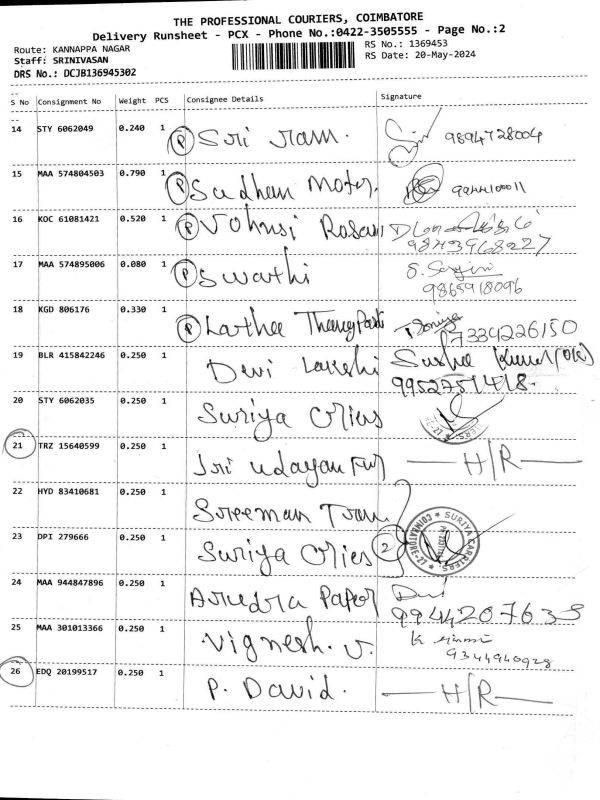 THE PROFESSIONAL COURIERS, COIMBATORE
Delivery Runsheet - PCX - Phone No.:0422-3505555 - Page No.:2
Route: KANNAPPA NAGAR
RS No.: 1369453
Staff: SRINIVASAN
RS Date: 20-May-2024
DRS No.: DCJB136945302
S No Consignment No Weight PCS Consignee Details Signature
14 STY 6062049 0.240 1 P Sri ram. 9894728004
15 MAA 574804503 0.790 1 P Sudhan Motor. 9944100011
16 KOC 61081421 0.520 1 P
9843968227
17 MAA 574895006 0.080 1 P Swathi
9865918096
18 KGD 806176 0.330 1 P Lathee
7334226150
19 BLR 415842246 0.250 1 Devi
9952751418-
20 STY 6062035 0.250 1 Suriya
21 TRZ 15640599 0.250 1 Sri udayan H/R
22 HYD 83410681 0.250 1 Sreeman
23 DPI 279666 0.250 1 Suriya 2
SURIYA CARRIERS * COIMBATORE-27 *
24 MAA 944847896 0.250 1 Arudra Paper
9944207635
25 MAA 301013366 0.250 1 Vignesh. V.
9344940928
26 EDQ 20199517 0.250 1 P. David. H/R